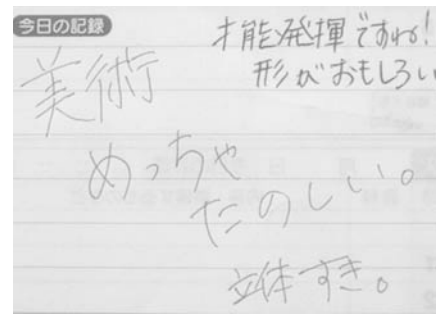 今日の記録
才能発揮ですね!
形がおもしろい
美術
めっちゃ
たのしい。
立体すき。